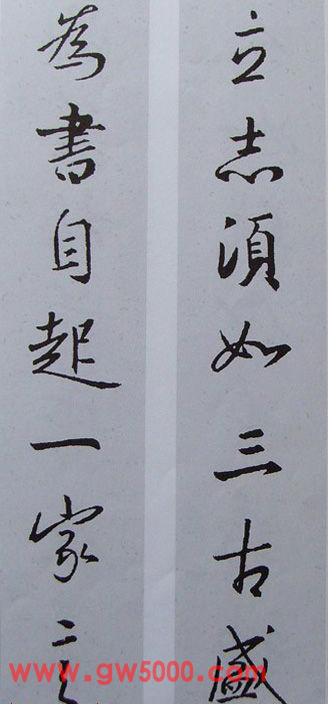 立志須如三古盛
為書自起一家言
www.gw5000.com